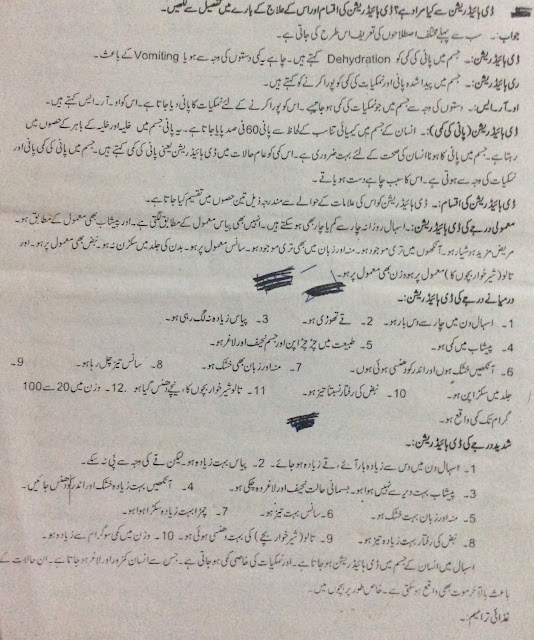 ڈی ہائیڈریشن سے کیا مراد ہے؟ ڈی ہائیڈریشن کی اقسام اور اس کے علاج کے بارے میں تفصیل سے لکھیں۔
جواب:۔ سب سے پہلے مختلف اصطلاحوں کی تعریف اس طرح کی جاتی ہے۔
ڈی ہائیڈریشن:۔ جسم میں پانی کی کمی کو Dehydration کہتے ہیں۔ چاہے یہ کمی دستوں کی وجہ سے ہو یا Vomiting کے باعث۔
ری ہائیڈریشن:۔ جسم میں پیدا شدہ پانی اور نمکیات کی کمی کو پورا کرنے کو کہتے ہیں۔
او۔آر۔ایس:۔ دستوں کی وجہ سے جسم میں جو نمکیات کی کمی ہو جائے۔ اس کو پورا کرنے کے لئے نمکیات کا پانی دیا جاتا ہے۔ اس کو او۔آر۔ایس کہتے ہیں۔
ڈی ہائیڈریشن (پانی کی کمی):۔ انسان کے جسم میں کیمیائی تناسب کے لحاظ سے پانی 60 فی صد پایا جاتا ہے۔ یہ پانی جسم میں خلیہ اور خلیہ کے باہر کے حصوں میں
رہتا ہے۔ جسم میں پانی کا ہونا انسان کی صحت کے لئے بہت ضروری ہے۔ اس کمی کو عام حالات میں ڈی ہائیڈریشن یعنی پانی کی کمی کہتے ہیں۔ جسم میں پانی کی کمی پانی اور
نمکیات کی کمی کی وجہ سے ہوتی ہے۔ اس کا سبب چاہے دست ہو یا قے۔
ڈی ہائیڈریشن کی اقسام:۔ ڈی ہائیڈریشن کو اس کی علامات کے حوالے سے مندرجہ ذیل تین حصوں میں تقسیم کیا جاتا ہے۔
معمولی درجے کی ڈی ہائیڈریشن:۔ اسہال روزانہ چار سے کم یا چار بھی ہو سکتے ہیں۔ انہیں بھی پیاس معمول کے مطابق لگتی ہے۔ اور پیشاب بھی معمول کے مطابق ہو۔
مریض مزید ہوشیار ہو۔ آنکھوں میں تری موجود ہو۔ منہ اور زبان میں بھی تری موجود ہو۔ سانس معمول پر ہو۔ بدن کی جلد میں سکڑن نہ ہو۔ نبض بھی معمول پر ہو۔ اور
تالو (شیر خوار بچوں کا) معمول پر ہو وزن بھی معمول پر ہو۔
درمیانے درجے کی ڈی ہائیڈریشن:۔
1۔ اسہال دن میں چار سے دس بار ہو۔ 2۔ قے تھوڑی ہو۔ 3۔ پیاس زیادہ نہ لگ رہی ہو۔
4۔ پیشاب میں کمی ہو۔ 5۔ طبیعت میں چڑچڑا پن اور جسم نحیف اور لاغر ہو۔
6۔ آنکھیں خشک ہوں اور اندر کو دھنسی ہوئی ہوں۔ 7۔ منہ اور زبان بھی خشک ہو۔ 8۔ سانس تیز چل رہا ہو۔ 9۔
جلد میں سکڑا پن ہو۔ 10۔ نبض کی رفتار نسبتاً تیز ہو۔ 11۔ تالو شیر خوار بچوں کا، نیچے دھنس گیا ہو۔ 12۔ وزن میں 20 سے 100
گرام تک کمی واقع ہو۔
شدید درجے کی ڈی ہائیڈریشن:۔
1۔ اسہال دن میں دس سے زیادہ بار آئے، قے زیادہ ہو جائے۔ 2۔ پیاس بہت زیادہ ہو۔ لیکن قے کی وجہ سے پی نہ سکے۔
3۔ پیشاب بہت دیر سے نہیں ہوا ہو۔ جسمانی حالت نحیف اور لاغر ہو چکی ہو۔ 4۔ آنکھیں بہت زیادہ خشک اور اندر دھنس جائیں۔
5۔ منہ اور زبان بہت خشک ہو۔ 6۔ سانس بہت تیز ہو۔ 7۔ چمڑا بہت زیادہ سکڑا ہوا ہو۔
8۔ نبض کی رفتار بہت زیادہ تیز ہو۔ 9۔ تالو (شیر خوار بچے) کی بہت دھنسی ہوئی ہو۔ 10۔ وزن میں کمی سو گرام سے زیادہ ہو۔
اسہال میں انسان کے جسم میں ڈی ہائیڈریشن ہو جاتا ہے۔ اور نمکیات کی خاصی کمی ہو جاتی ہے۔ جس سے انسان کمزور اور لاغر ہو جاتا ہے۔ ان حالات کے
باعث بالآخر موت بھی واقع ہو سکتی ہے۔ خاص طور پر بچوں میں۔
غذائی ترامیم:۔